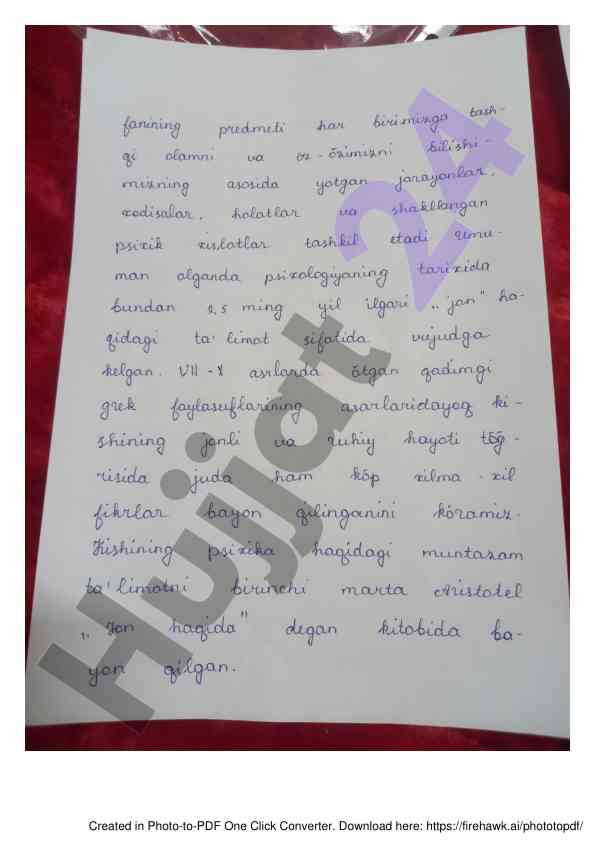 fanining predmeti har birimizga tash-
qi olamni va oz-özimizni bilishi-
mizning asosida yotgan jarayonlar,
xodisalar, holatlar va shakllangan
psixik xislatlar tashkil etadi Umu-
man olganda psixologiyaning tarixida
bundan 2,5 ming yil ilgari „jan" ha-
qidagi ta'limot sifatida vujudga
kelgan. VII-X asrlarda ötgan qadimgi
grek faylasuflarining asarlaridayoq ki-
shining jonli va ruhiy hayoti töğ-
risida juda ham köp xilma-xil
fikrlar bayon qilinganini köramiz.
Kishining psixika haqidagi muntazam
ta'limotni birinchi marta Aristotel
„Jon haqida" degan kitobida ba-
yon qilgan.
Hujjat 24
Created in Photo-to-PDF One Click Converter. Download here: https://firehawk.ai/phototopdf/